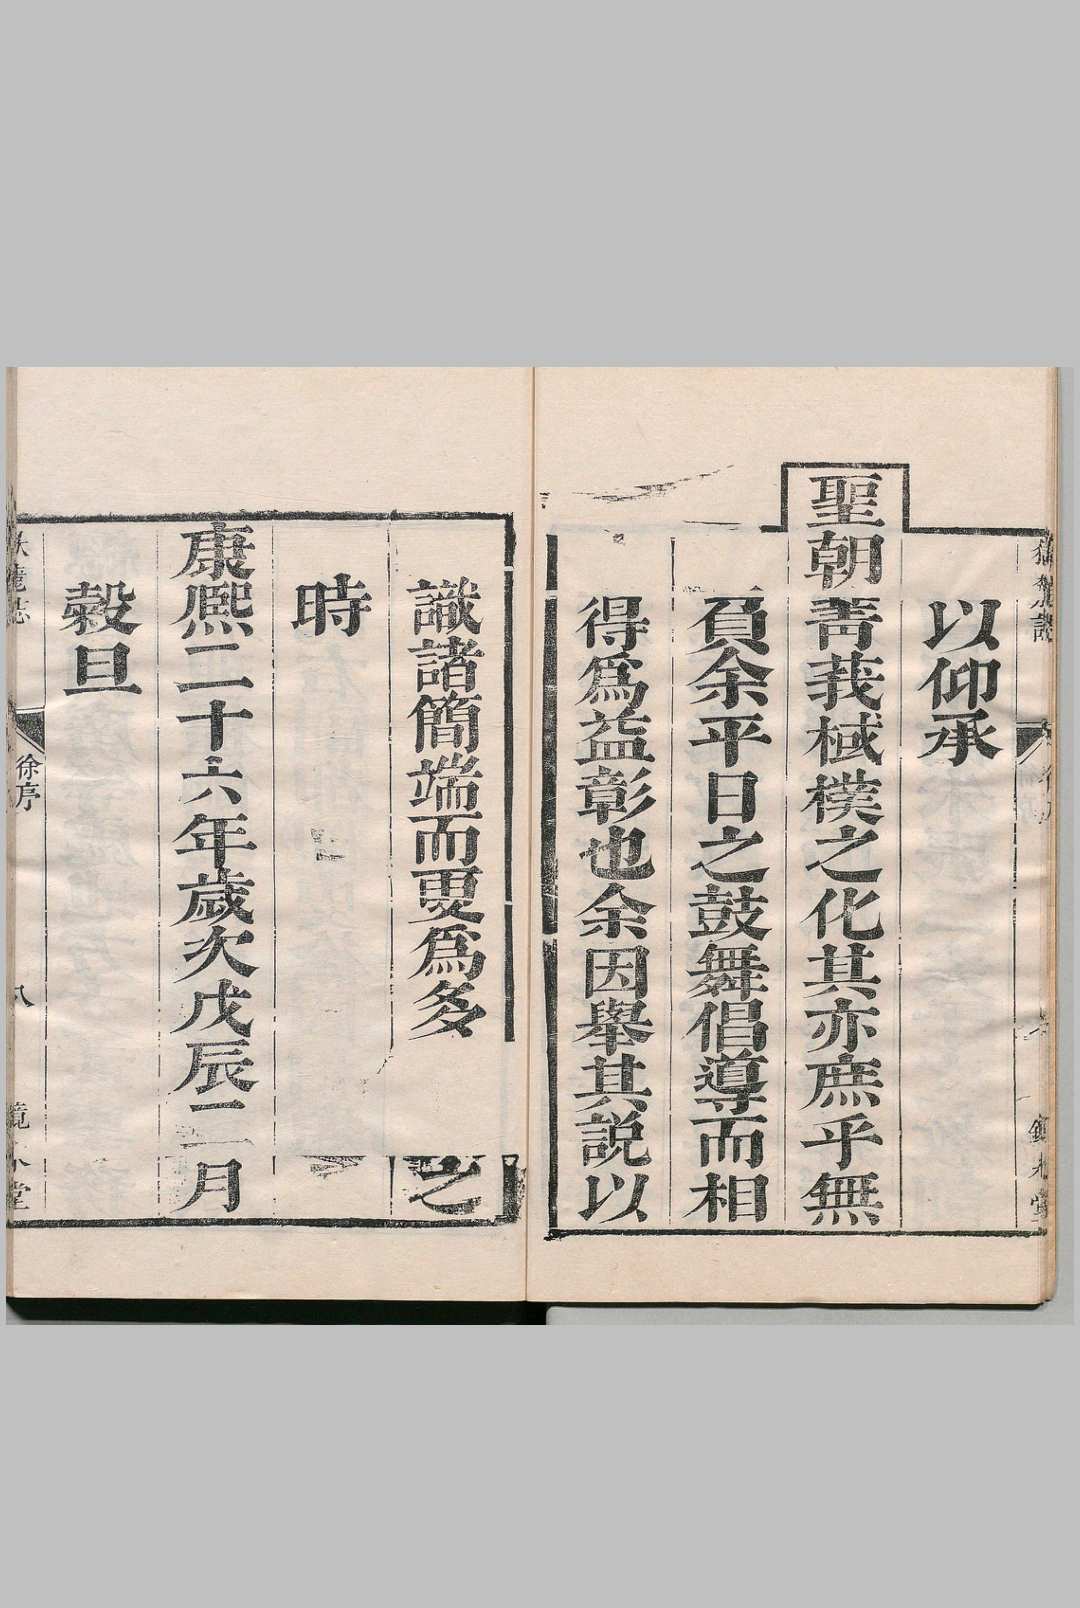 以仰承
聖朝菁莪棫樸之化其亦庶乎無
負余平日之鼓舞倡導而相
得爲益彰也余因舉其説以
識諸簡端而更爲多
之
時
康熙二十六年歲次戊辰二月
穀旦
徐序
八